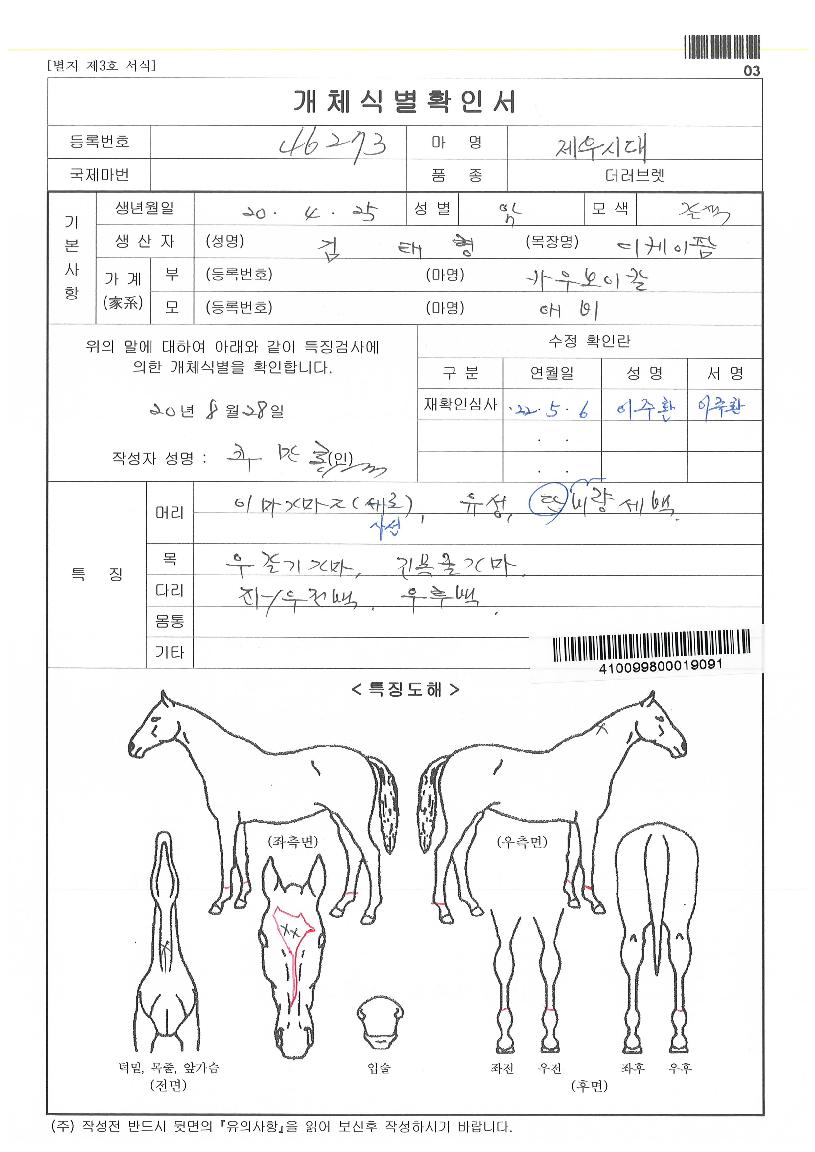 03
[별지 제3호 서식]
개체식별확인서
등록번호 46273 마 명 제우시대
국제마번 품 종 더러브렛
기본사항
생년월일 20. 4. 25 성별 암 모색
생산자 (성명) 김 태 형 (목장명) 디케이팜
가계(家系) 부 (등록번호) (마명) 카우보이칼
모 (등록번호) (마명) 애비
위의 말에 대하여 아래와 같이 특징검사에
의한 개체식별을 확인합니다.
20년 8월 28일
작성자 성명 : (인)
수정 확인란
구분 연월일 성명 서명
재확인심사 '22. 5. 6 이주환 이주환
. .
. .
특 징
머리 이마가마2(세로), 유성, 단비량세백.
사선
목 우줄기가마, 긴목줄가마.
다리 좌/우전백, 우후백.
몸통
기타
410099800019091
< 특징도해 >
(좌측면) (우측면)
턱밑, 목줄, 앞가슴 입술 좌전 우전 좌후 우후
(전면) (후면)
(주) 작성전 반드시 뒷면의 『유의사항』을 읽어 보신후 작성하시기 바랍니다.